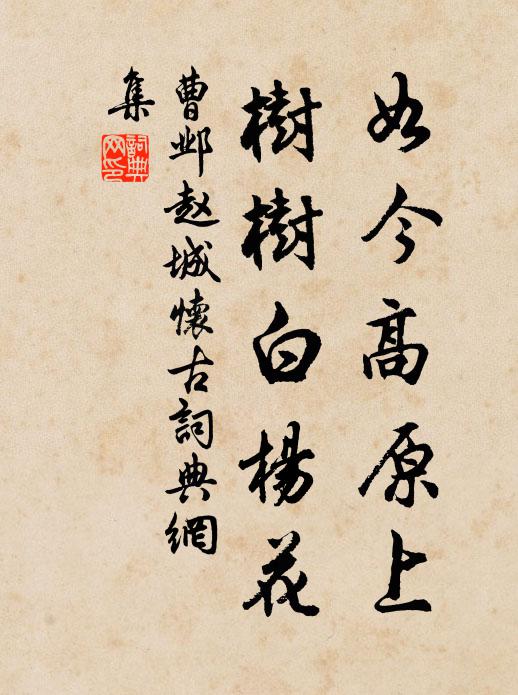 如今高原上
樹樹白楊花
曹邺趙城懷古詞典網
集
詞典
网印